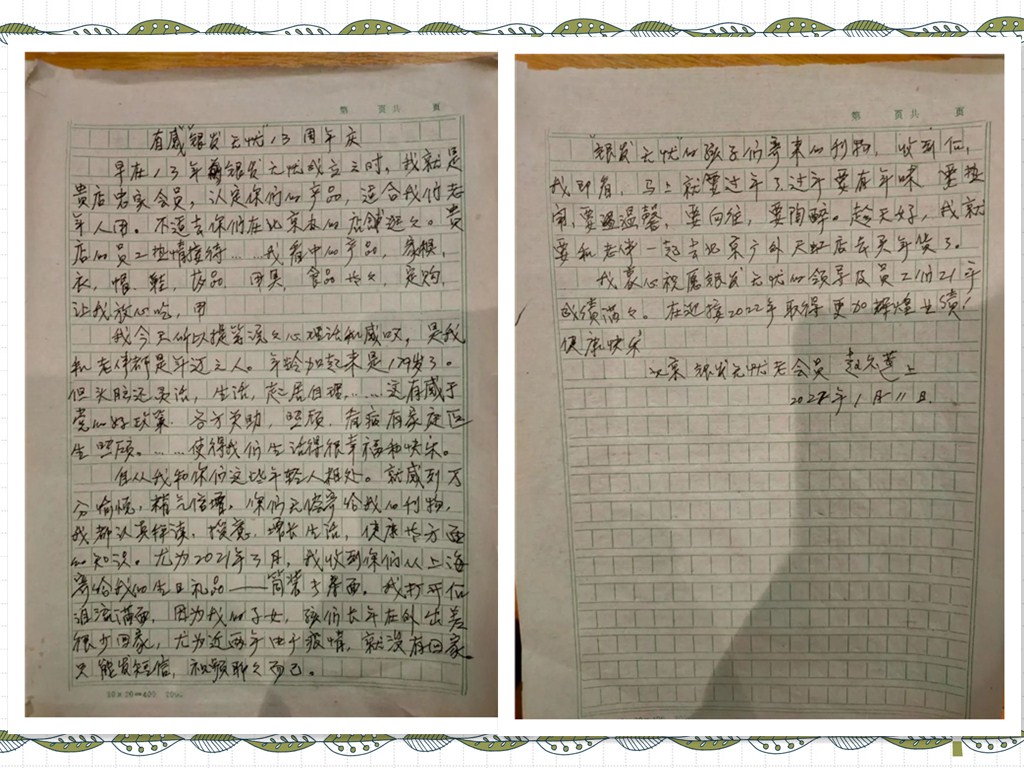 第 页共 页
有感"银发无忧"13周年庆
早在13年前银发无忧成立之时，我就是
贵店忠家会员，认定你们的产品，适合我们老
年人用。不适去你们在北京办的店铺逛久。贵
店的员工热情接待……我看中的产品，
衣，帽，鞋，药品，用具，食品等々，定购，
让我放心吃，用
我今天所以提笔说々心理话和感叹，是我
和老伴都是年迈之人。年龄加起来是 岁了。
但头脑还灵活，生活，起居自理，……这有感于
党的好政策，各方关助，照顾，有病有家庭医
生照顾。……使得我们生活得很幸福和快乐。
自从我和你们这些年轻人相处。就感到万
分愉悦，精气倍增，你们无偿寄给我的刊物，
我都认真拜读，增长生活，健康等方面
的知识。尤为2021年3月，我收到你们从上海
寄给我的生日礼品——筒装手摩面。我打开后
泪流满面，因为我的子女，孩们长年在外出差
很少回家，尤为近两年由于疫情，就没有回家
只能发短信，视频聊々而已。
20×20=400
第 页共 页
"银发无忧"的孩子们寄来的刊物，收到后，
我即看，马上就要过年了过年要有年味 要热
闹，要温馨，要向往，要陶醉。趁天好，我就
要和老伴一起去北京广外天虹店去买年货了。
我衷心祝愿银发无忧的领导及员工们21年
成绩满々。在迎接2022年取得更加辉煌业绩！
健康快乐
北京银发无忧老会员 赵 莲上
2022年1月11日.